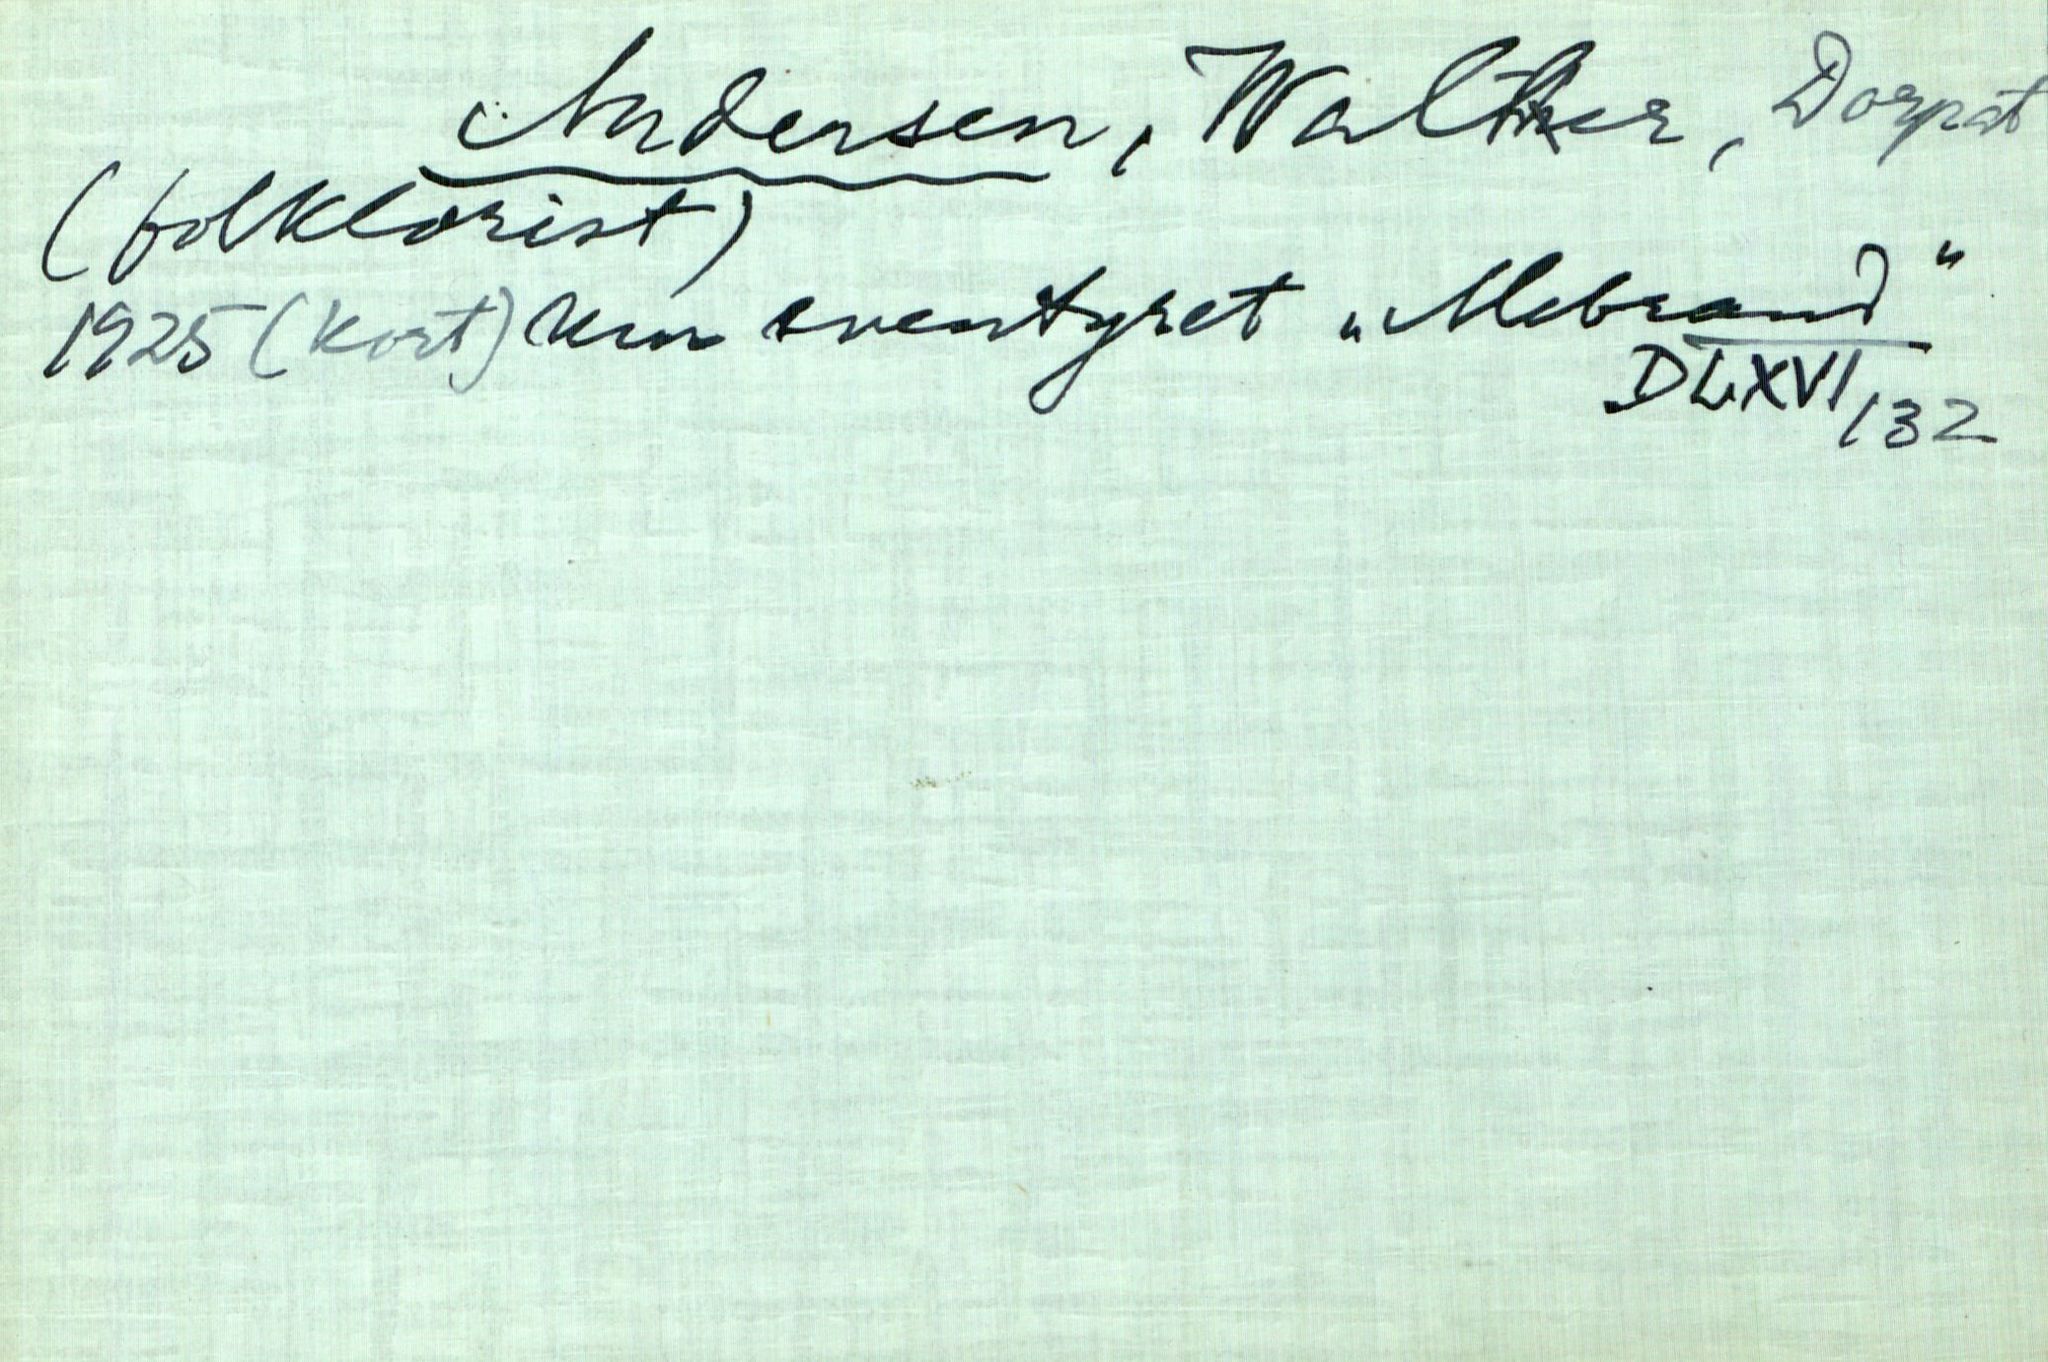 Andersen, Walther, Dorpat
(folklorist)
1925 (kort) um eventyret „Mebrand"
DLXVI/132